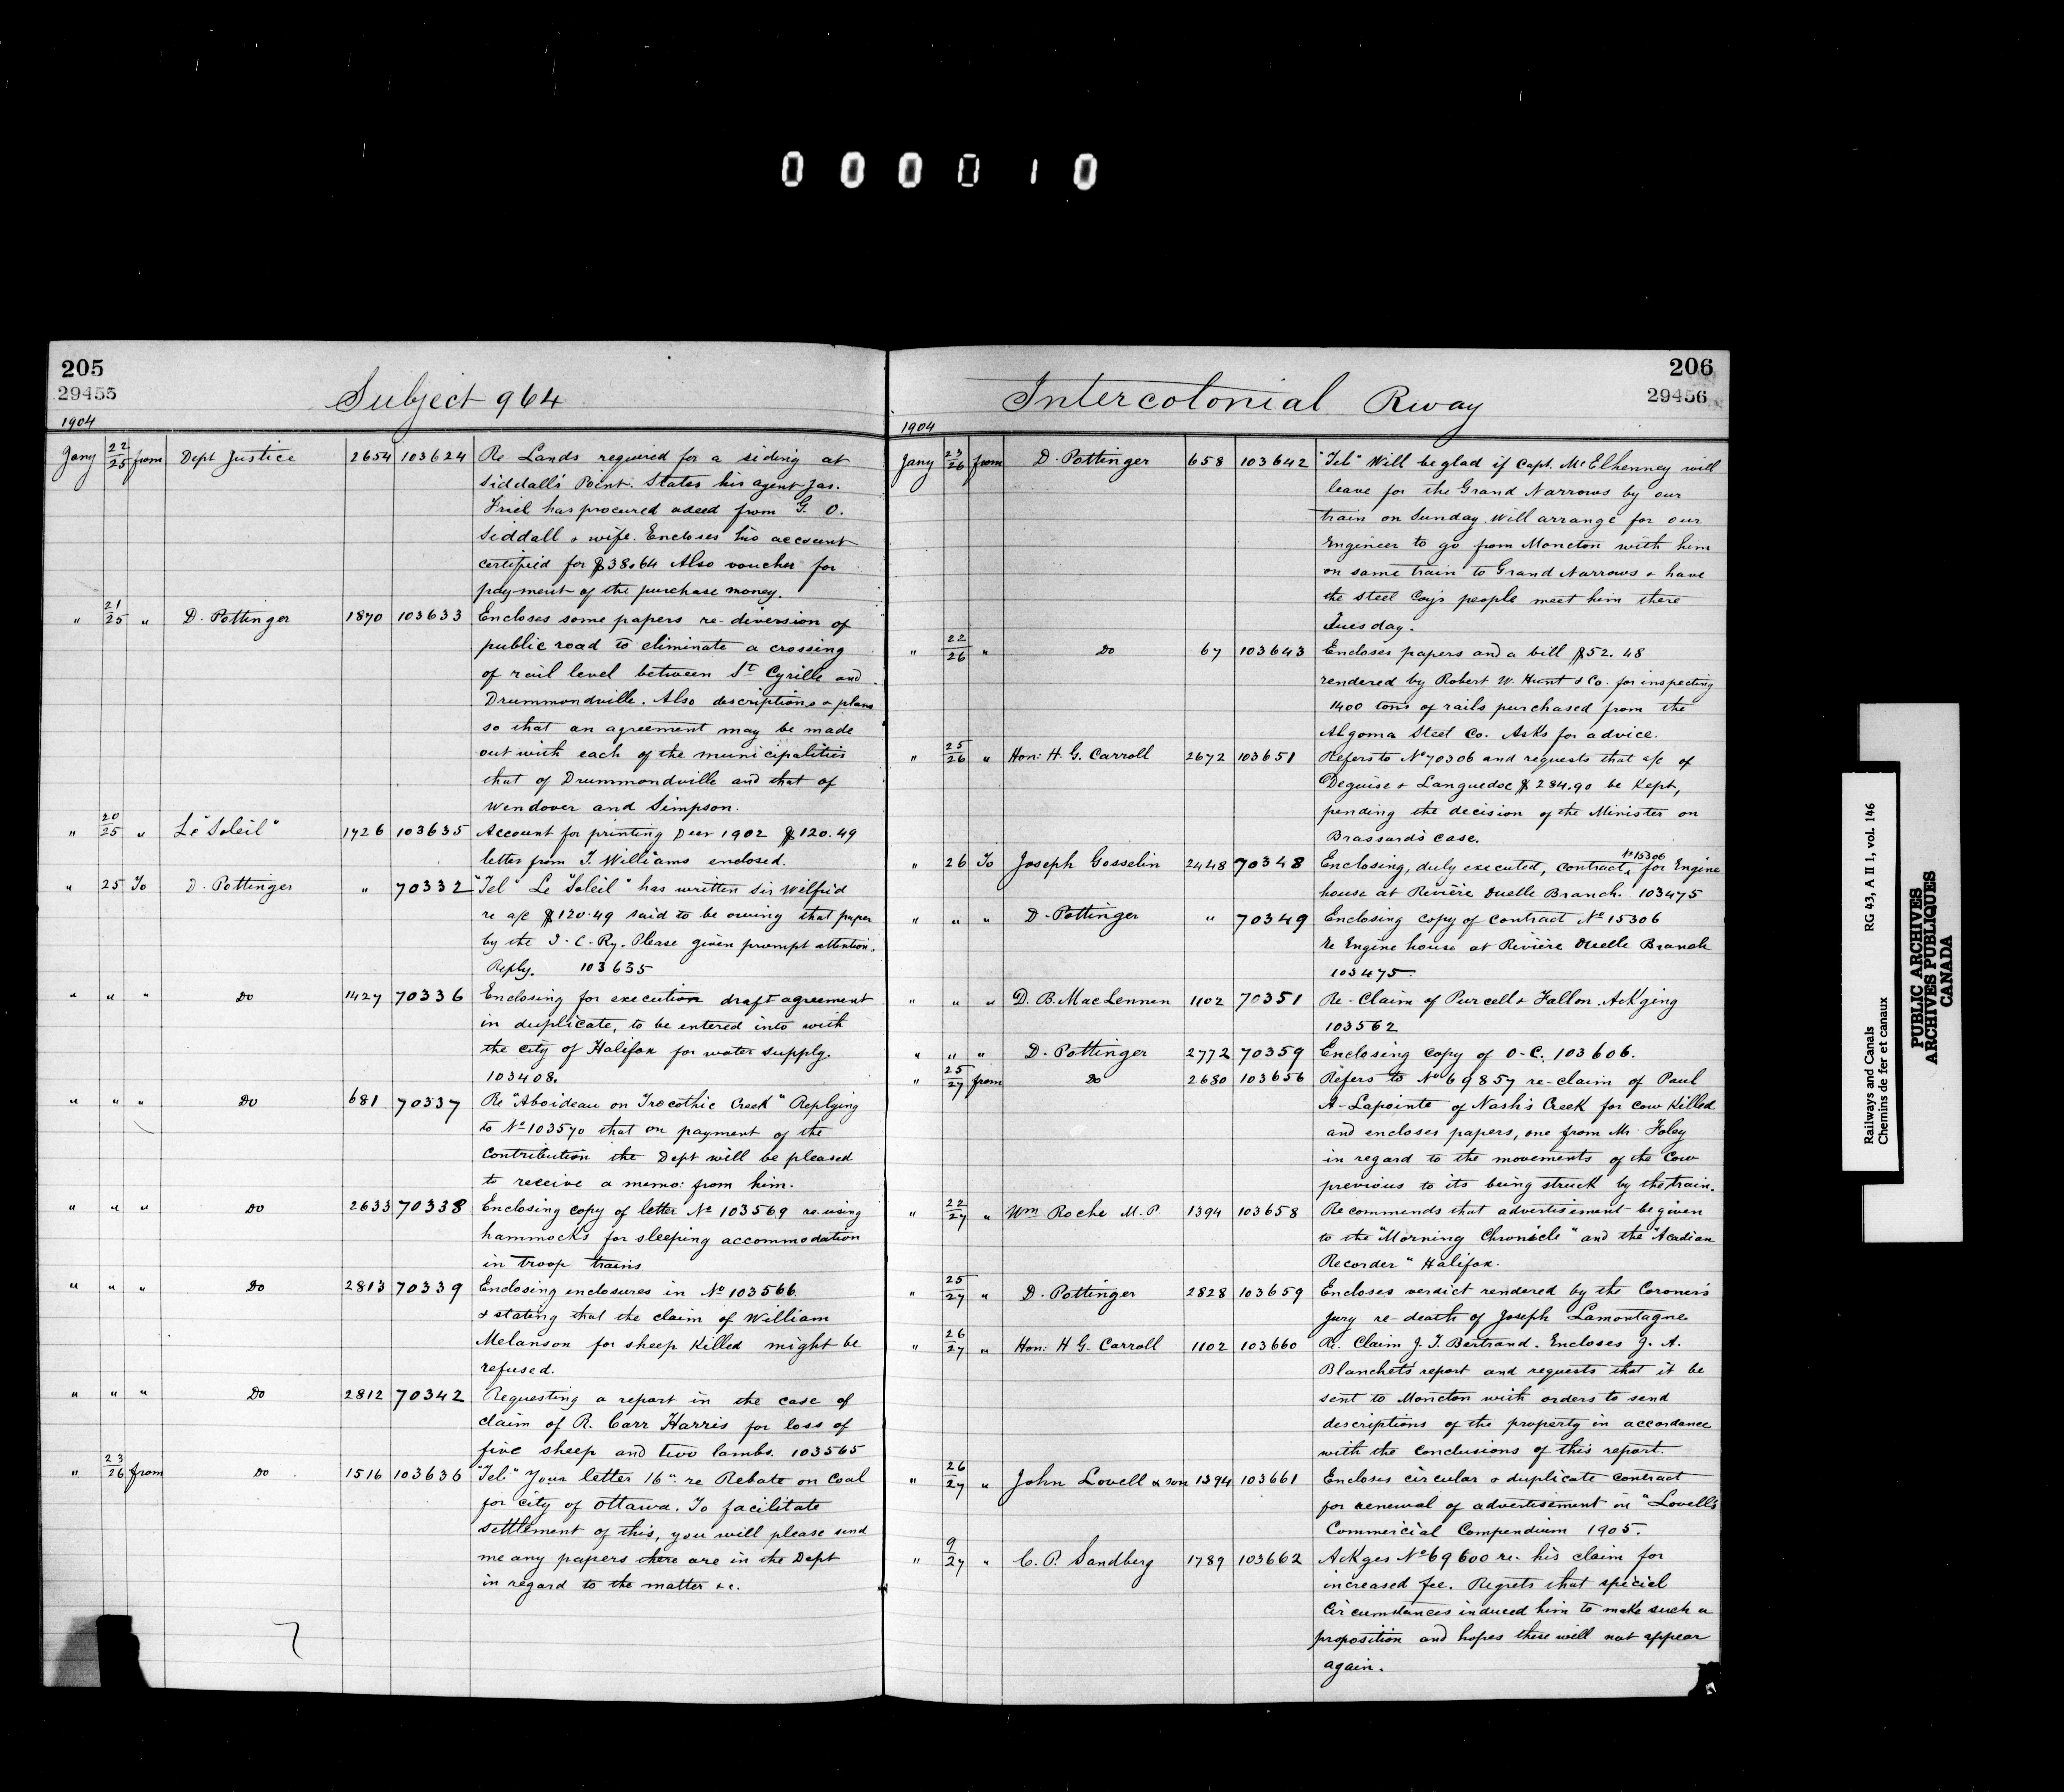 000010
205
29455
Subject 964
1904
Jany 22/25 from Dept Justice 2654 103624 Re Lands required for a siding at
Siddall's Point. States his agent Jas.
Friel has procured a deed from G. O.
Siddall & wife. Encloses his account
certified for $38.64 Also voucher for
pay-ment of the purchase money.
" 21/25 " D. Pottinger 1870 103633 Encloses some papers re-diversion of
public road to eliminate a crossing
of rail level between St Cyrille and
Drummondville. Also descriptions & plans
so that an agreement may be made
out with each of the municipalities
that of Drummondville and that of
Wendover and Simpson.
" 20/25 " Le "Soleil" 1726 103635 Account for printing Decr 1902 $120.49
letter from T. Williams enclosed.
" 25 To D. Pottinger " 70332 "Tel" Le "Soleil" has written Sir Wilfrid
re a/c $120.49 said to be owing that paper
by the I. C. Ry. Please given prompt attention.
Reply. 103635
" " " Do 1427 70336 Enclosing for execution draft agreement
in duplicate, to be entered into with
the city of Halifax for water supply.
103408.
" " " Do 681 70337 Re "Aboideau on Trocothic Creek" Replying
to No 103570 that on payment of the
Contribution the Dept will be pleased
to receive a memo: from him.
" " " Do 2633 70338 Enclosing copy of letter No 103569 re using
hammocks for sleeping accommodation
in troop trains
" " " Do 2813 70339 Enclosing enclosures in No 103566.
& stating that the claim of William
Melanson for sheep Killed might be
refused.
" " " Do 2812 70342 Requesting a report in the case of
claim of R. Carr Harris for loss of
five sheep and two lambs. 103565
" 23/26 from Do 1516 103636 "Tel" Your letter 16" re Rebate on Coal
for city of Ottawa. To facilitate
settlement of this, you will please send
me any papers there are in the Dept
in regard to the matter &c.
7
206
29456
Intercolonial Rway
1904
Jany 23/26 from D. Pottinger 658 103642 "Tel" Will be glad if Capt. McElhenney will
leave for the Grand Narrows by our
train on Sunday. Will arrange for our
Engineer to go from Moncton with him
on same train to Grand Narrows & have
the Steel Coy's people meet him there
Tuesday.
" 22/26 " Do 67 103643 Encloses papers and a bill $52.48
rendered by Robert W. Hunt & Co. for inspecting
1400 tons of rails purchased from the
Algoma Steel Co. Asks for advice.
" 25/26 " Hon: H. G. Carroll 2672 103651 Refers to No 70306 and requests that a/c of
Deguise & Languedoc $284.90 be Kept,
pending the decision of the Minister on
Brassard's case.
" 26 To Joseph Gosselin 2448 70348 Enclosing, duly executed, contract No 15306 for Engine
house at Rivière Ouelle Branch. 103475
" " " D. Pottinger " 70349 Enclosing copy of Contract No 15306
re Engine house at Rivière Ouelle Branch
103475.
" " " D. B. MacLennan 1102 70351 Re-Claim of Purcell & Fallon. Ackging
103562
" " " D. Pottinger 2772 70359 Enclosing copy of O-C. 103606.
" 25/27 from Do 2680 103656 Refers to No 69857 re-claim of Paul
A-Lapointe of Nash's Creek for cow Killed
and encloses papers, one from Mr Foley
in regard to the movements of the Cow
previous to its being struck by the train.
" 22/27 " Wm Roche M. P. 1394 103658 Recommends that advertisement be given
to the "Morning Chronicle" and the "Acadian
Recorder" Halifax.
" 25/27 " D. Pottinger 2828 103659 Encloses verdict rendered by the Coroner's
jury re-death of Joseph Lamontagne
" 26/27 " Hon: H G. Carroll 1102 103660 Re. Claim J. T. Bertrand. Encloses J. A.
Blanchet's report and requests that it be
sent to Moncton with orders to send
descriptions of the property in accordance
with the conclusions of this report.
" 26/27 " John Lovell & son 1394 103661 Encloses circular & duplicate contract
for renewal of advertisement in "Lovell's
Commercial Compendium 1905.
" 9/27 " C. P. Sandberg 1789 103662 Ackges No 69600 re. his claim for
increased fee. Regrets that special
Circumstances induced him to make such a
proposition and hopes these will not appear
again.
Railways and Canals RG 43, A II 1, vol. 146
Chemins de fer et canaux
PUBLIC ARCHIVES
ARCHIVES PUBLIQUES
CANADA